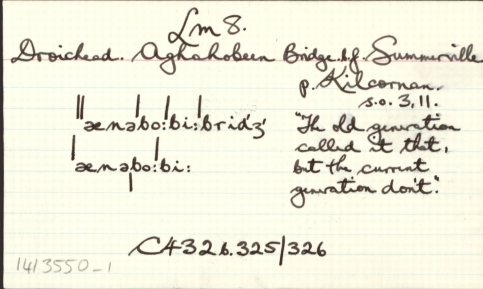 Lm 8.
Droichead. Aghahobeen Bridge. b.f. Summerville
p. Kilcornan.
s.o. 3, 11.
ænəbo:bi:bridʒ "Th old generation
called it that,
ænəbo:bi: but the current
generation don't."
C432b.325/326
1413550-1